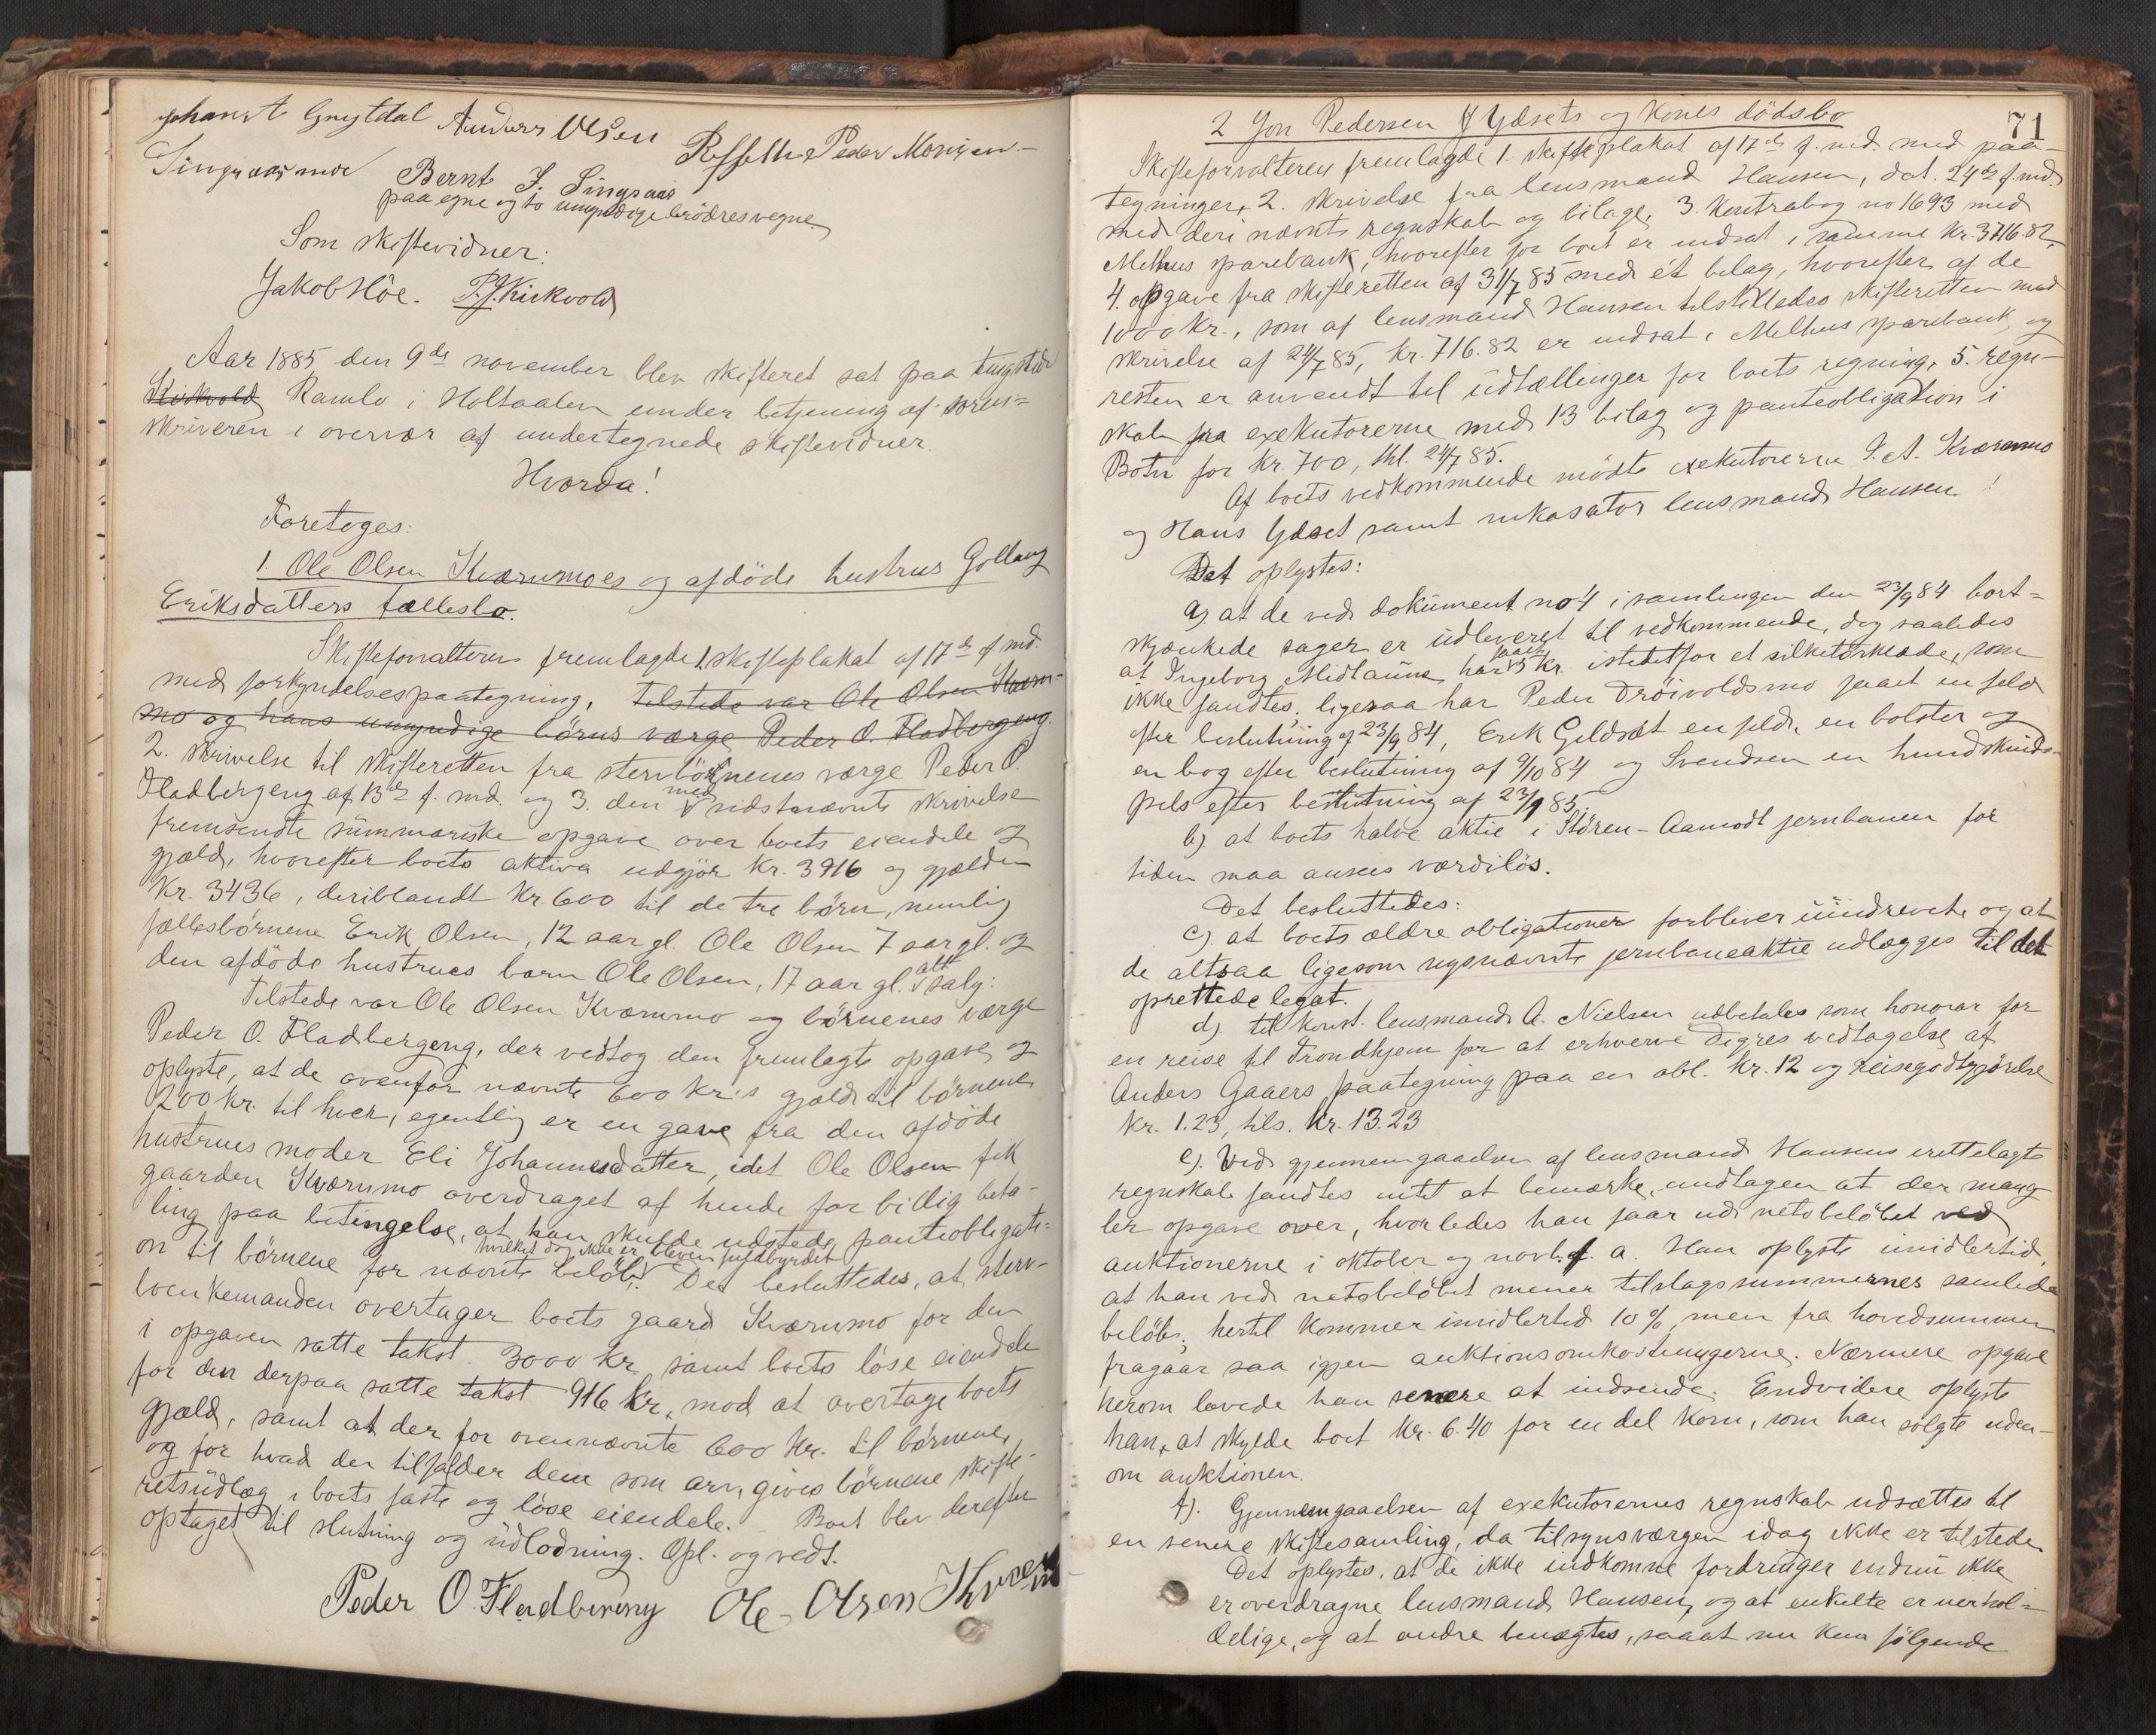 Anders Olsen
Peder Monsen
Singsaas moe
Bernt J. Singsaas
paa egne og to umyndige brödres vegne
Som skiftevidner:
Jakob Höe. P. J. Kirkvold
Aar 1885 den 9de november blev skifteret sat paa tingstedet
Kirkvold Ramlo i Holtaalen under betjening af soren=
skriveren i overvær af undertegnede skiftevidner.
Hvorda!
Foretoges:
1. Ole Olsen Kværnmoes og afdöde hustrus Gollaug
Eriksdatters fællesbo.
Skifteforvalteren fremlagde 1. skifteplakat af 17de f. md.
med forkyndelsespaategning, tilstede var Ole Olsen Kværn-
mo og hans umyndige börns værge Peder O. Fladbergeng.
2. skrivelse til skifteretten fra stervbörnenes værge Peder O.
Fladbergeng af 13de f. md. og 3. den med sidstnævnte skrivelse
fremsendte summariske opgave over boets eiendele og
gjæld, hvorefter boets aktiva udgjör kr. 3916 og gjælden
kr. 3436, deriblandt kr. 600 til de tre börn, nemlig
fællesbörnene Erik Olsen, 12 aar gl. Ole Olsen 7 aar gl. og
den afdöde hustrues barn Ole Olsen, 17 aar gl. alt saly:
Tilstede var Ole Olsen Kværnmo og börnenes værge
Peder O. Fladbergeng, der vedtog den fremlagte opgave og
oplyste, at de ovenfor nævnte 600 kr:s gjæld til börnene
200 kr. til hver, egentlig er en gave fra den afdöde
hustrues moder Eli Johannesdatter, idet Ole Olsen fik
gaarden Kværnmo overdraget af hende for billig beta-
ling paa betingelse, at han skulde udstede panteobligati=
on til börnene for nævnte belöb, hvilket dog ikke er bleven fuldbyrdet. Det besluttedes, at sterv-
boenkemanden overtager boets gaard Kværnmo for den
i opgaven satte takst 3000 kr. samt boets löse eiendele
for den derpaa satte takst 916 kr., mod at overtage boets
gjæld, samt at der for ovennævnte 600 kr. til börnene,
og for hvad der tilfalder dem som arv, gives börnene skifte-
retsudlæg i boets faste og löse eiendele. Boet blev derefter
optaget til slutning og udlodning. Opl. og vedt.
Peder O. Fladbereng Ole Olsen Kværnm
71
2 Jon Pedersen Ydsets og kones dödsbo
Skifteforvalteren fremlagde 1. skifteplakat af 17de f. md. med paa-
tegninger, 2. skrivelse fra lensmand Hansen, dat. 24de f. md.
med deri nævnte regnskab og bilage, 3. kontrabog no 1693 med
Melhus sparebank, hvorefter for boet er indsat i samme kr. 3716.82,
4. opgave fra skifteretten af 31/7 85 med ét bilag, hvorefter af de
1000 kr., som af lensmand Hansen tilstilledes skifteretten med
skrivelse af 24/7 85, kr. 716.82 er indsat i Melhus sparebank og
resten er anvendt til udtællinger for boets regning, 5. regn-
skab fra exekutorerne med 13 bilag og panteobligation i
Botn for kr. 700, thl. 24/7 85.
Af boets vedkommende mödte exekutorerne I. A. Kværnmo
og Hans Ydset samt inkasator lensmand Hansen!
Det oplystes:
a). at de ved dokument no 4 i samlingen den 23/9 84 bort=
skjænkede sager er udleveret til vedkommende, dog saaledes
at Ingeborg Midtaune har faaet 5 kr. istedetfor et silketörklæde, som
ikke fandtes, ligesaa har Peder Dröivoldsmo faaet en feld
efter beslutning af 23/9 84, Erik Geldsæt en feld, en bolster og
en bog efter beslutning af 9/10 84 og Svendsen en hundskinds-
pels efter beslutning af 23/9 85.
b) at boets halve aktie i Stören-Aamodt jernbanen for
tiden maa ansees værdilös.
Det besluttedes:
c). at boets ældre obligationer forbliver uindrevet og at
de altsaa ligesom nysnævnte jernbaneaktie udlægges til det
oprettede legat.
d). til konst. lensmand A. Nielsen udbetales som honorar for
en reise til Trondhjem for at erhverve Digres vedtagelse af
Anders Gaaers paategning paa en obl. kr. 12 og reisegodtgjörelse
kr. 1.23, tils. kr. 13.23
e). Ved gjennemgaaelsen af lensmand Hansens irettelagte
regnskab fandtes intet at bemærke, undtagen at der mang-
ler opgave over, hvorledes han faar ud netobelöbet ved
auktionerne i oktober og novb. f. a. Han oplyste imidlertid
at han ved netobelöbet mener tilslagssummernes samlede
belöb; hertil kommer imidlertid 10 %, men fra hovedsummen
fragaar saa igjen auktionsomkostningerne. Nærmere opgave
herom lovede han senere at indsende. Endvidere oplyste
han, at skylde boet kr. 6.40 for en del korn, som han solgte uden-
om auktionen.
f). Gjennemgaaelsen af exekutorernes regnskab udsættes til
en senere skiftesamling, da tilsynsværgen idag ikke er tilstede.
Det oplystes, at de ikke indkomne fordringer endnu ikke
er overdragne lensmand Hansen, og at enkelte er uerhol=
delige, og at andre benægtes, saaat nu kun fölgende